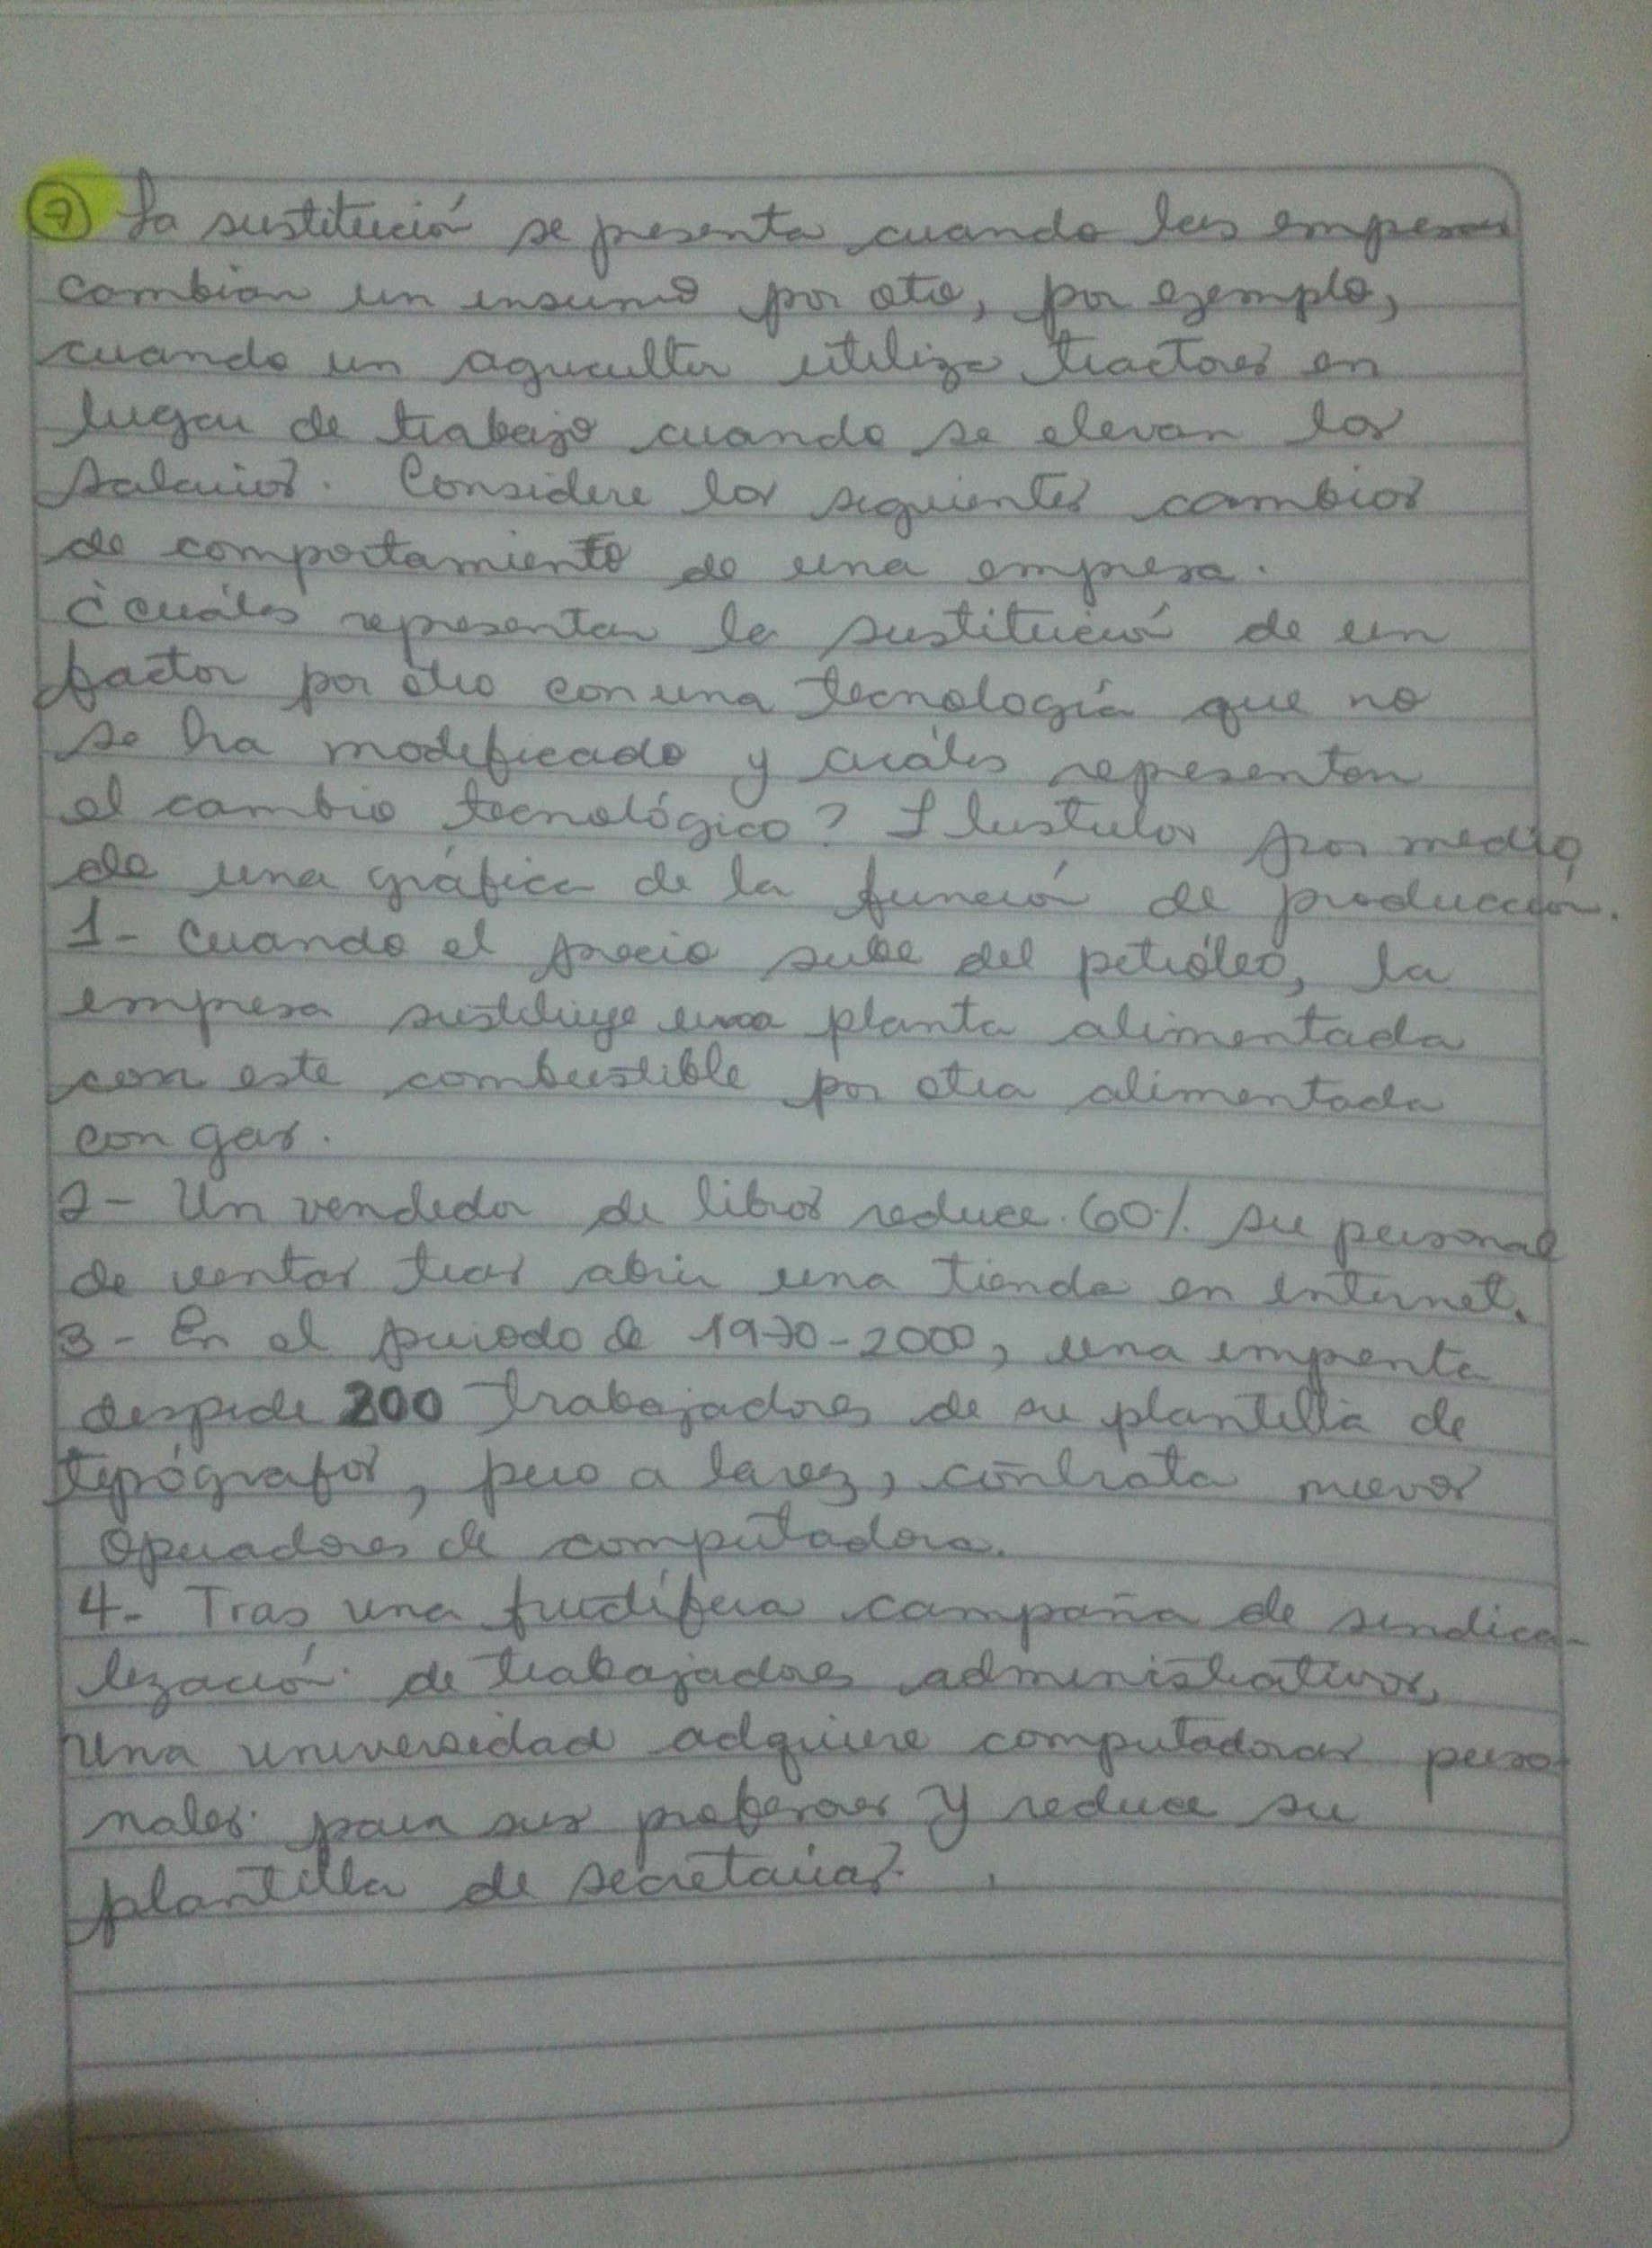 7 La sustitución se presenta cuando las empresas
cambian un insumo por otro, por ejemplo,
cuando un agricultor utiliza tractores en
lugar de trabajo cuando se elevan los
salarios. Considere los siguientes cambios
de comportamiento de una empresa.
¿cuáles representan la sustitución de un
factor por otro con una tecnología que no
se ha modificado y cuáles representan
el cambio tecnológico? Ilustrelos por medio
de una gráfica de la función de producción.
1- Cuando el precio sube del petróleo, la
empresa sustituye una planta alimentada
con este combustible por otra alimentada
con gas.
2- Un vendedor de libros reduce 60% su personal
de ventas tras abrir una tienda en internet.
3- En el periodo de 1970-2000, una imprenta
despide 200 trabajadores de su plantilla de
tipógrafos, pero a la vez, contrata nuevos
operadores de computadora.
4- Tras una fructífera campaña de sindica-
lización de trabajadores administrativos,
una universidad adquiere computadoras perso-
nales para sus profesores y reduce su
plantilla de secretarias.